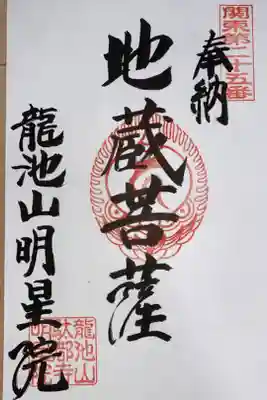 関東第二十五番
奉納
地蔵菩薩
龍池山明星院
龍池山